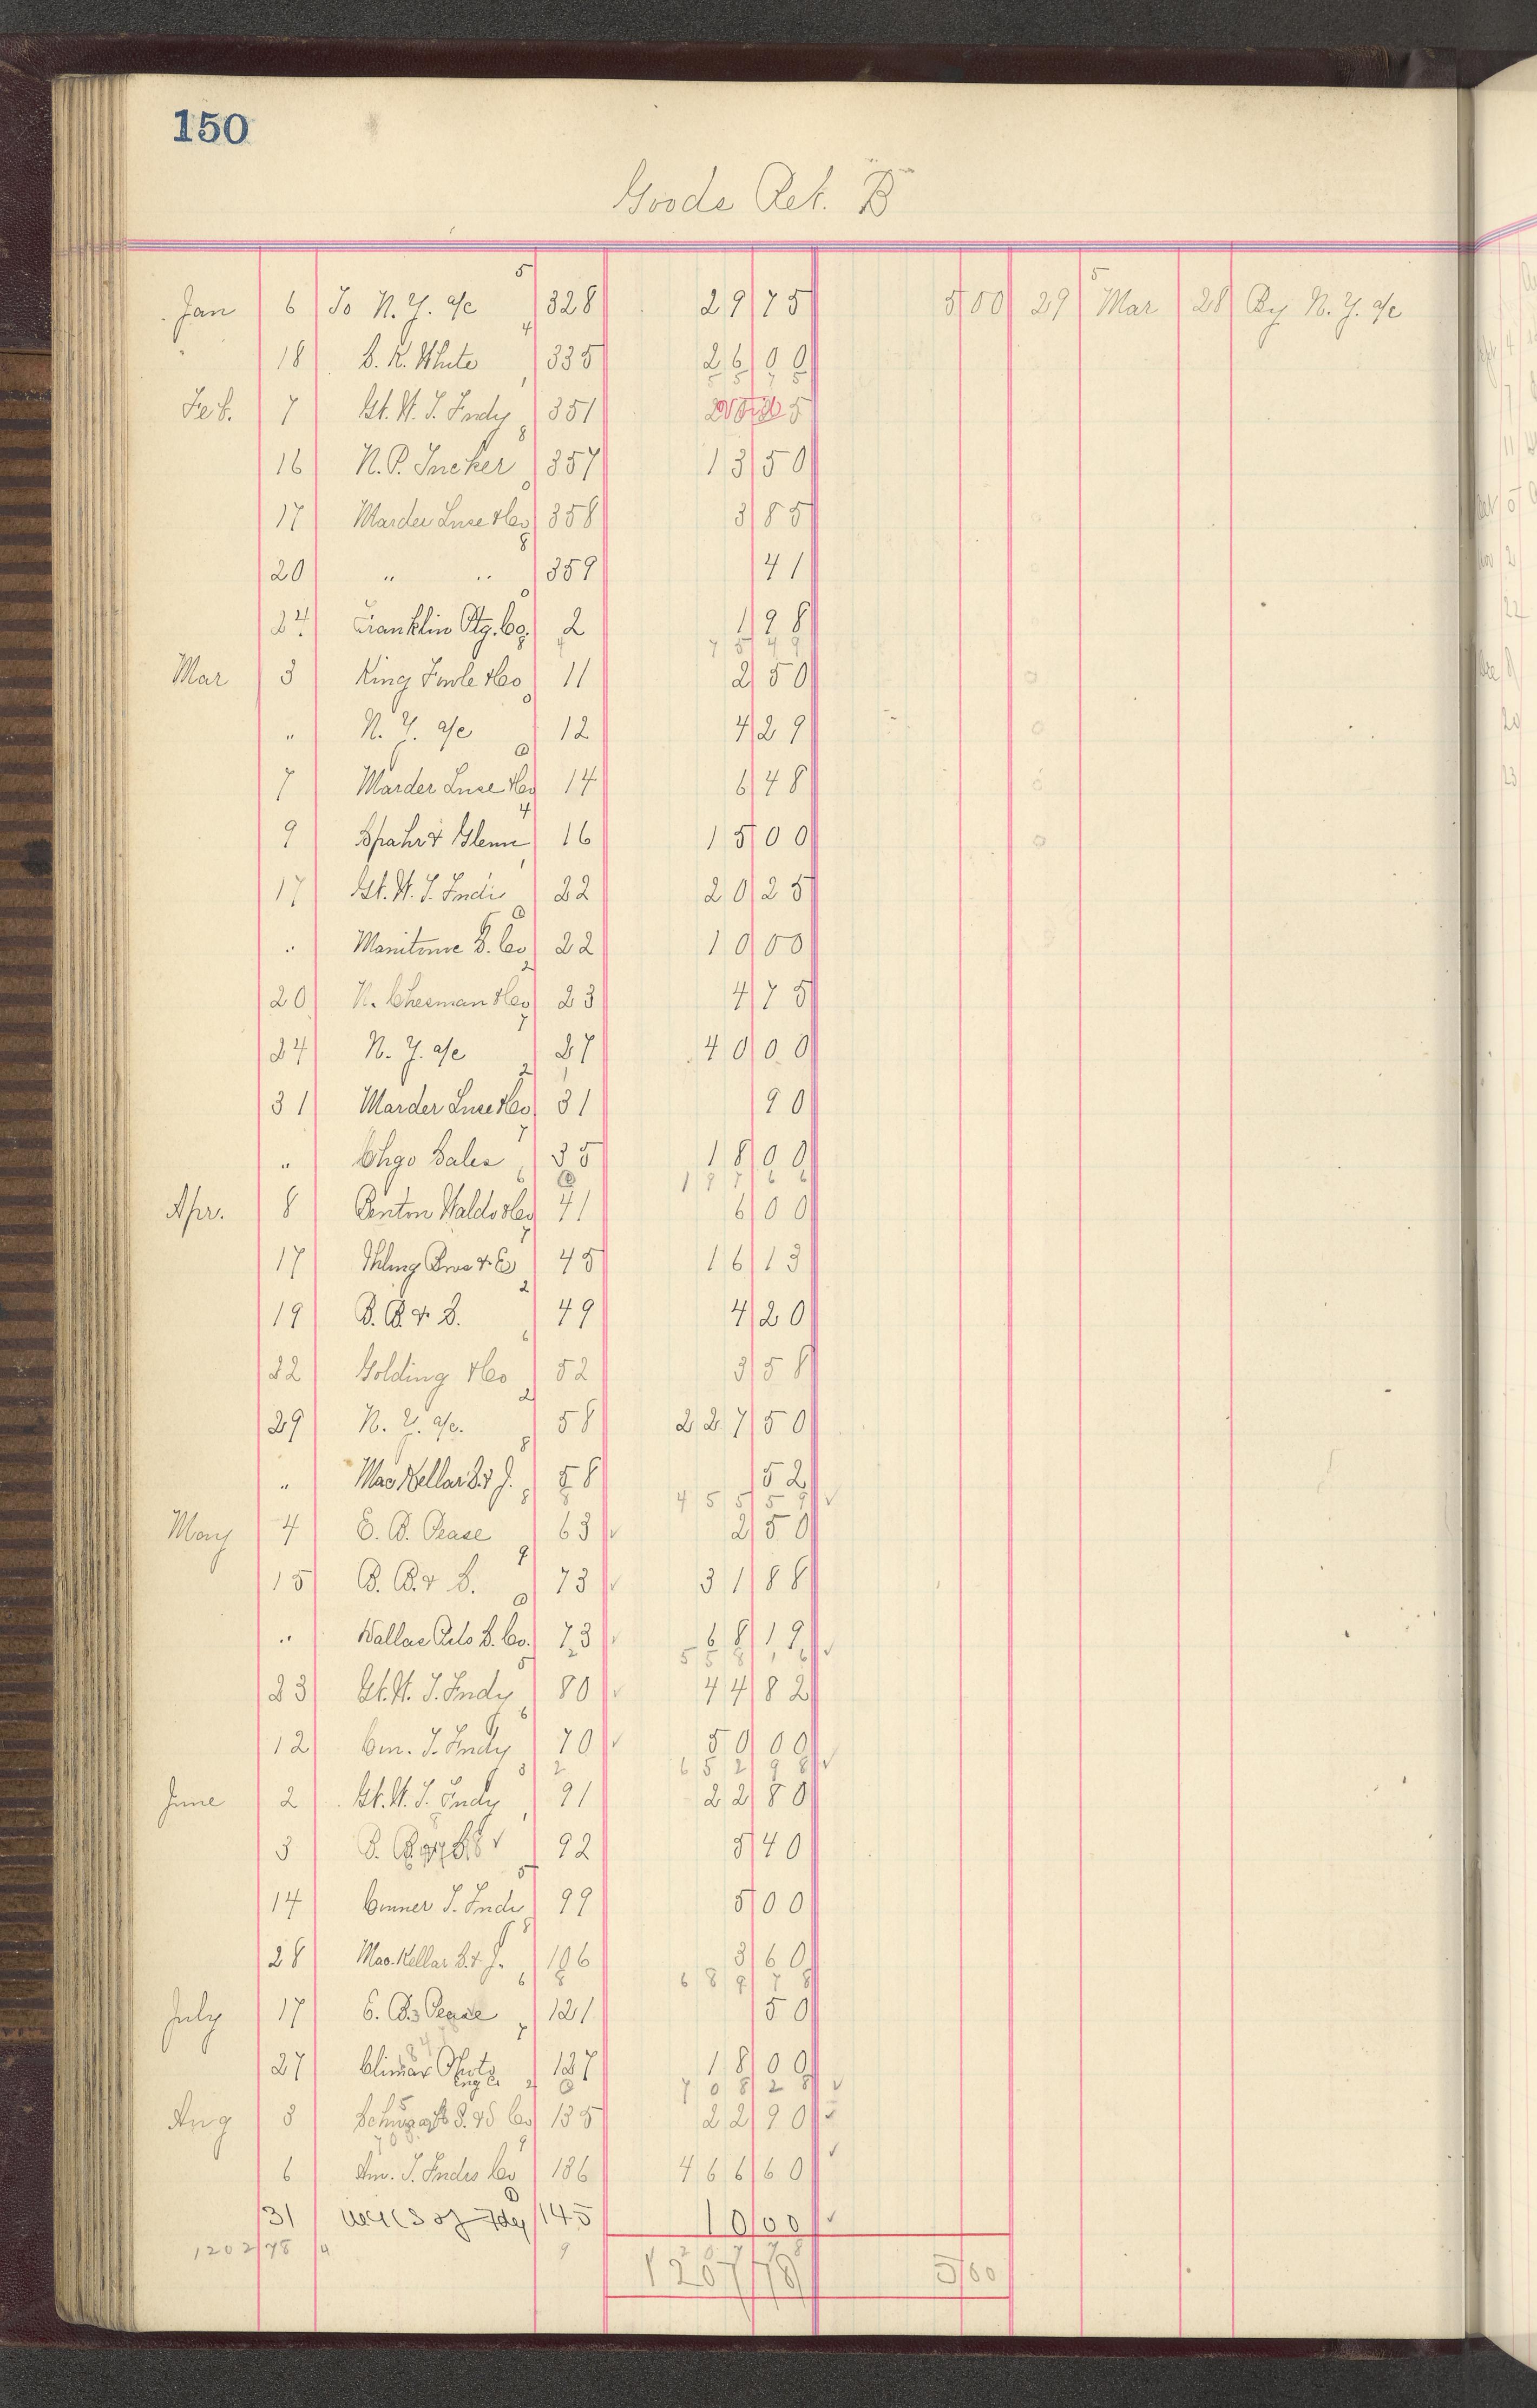 150
Goods Ret. B
Jan 6 To N. Y. a/c 328 29 75 5 00 29 Mar 28 By N. Y. a/c
18 335 26 00
55 75
Feb. 7 Gt. W. T. Indy 351 Void
16 N. P. Tucker 357 13 50
17 Marder Luse & Co 358 3 85
20 " " 359 41
24 Franklin Ptg. Co. 2 1 98
75 49
Mar 3 King Fowle & Co 11 2 50
" N. Y. a/c 12 4 29
7 Marder Luse & Co 14 6 48
9 Spahr & Glenn 16 15 00
17 Gt. W. T. Indi 22 20 25
" 22 10 00
20 Cheeman & Co 23 4 75
24 N. Y. a/c 27 40 00
31 Marder Luse & Co 31 90
" Chgo Sales 35 18 00
197 66
Apr. 8 Benton Waldo & Co 41 6 00
17 Ihling Bros & Co 45 16 13
19 B. B. & S. 49 4 20
22 Golding & Co 52 3 58
29 N. Y. a/c. 58 227 50
" MacKellar S. & J. 58 52
455 59
May 4 E. B. Pease 63 2 50
15 B. B. & S. 73 31 88
" 73 68 19
558 16
23 Gt. W. T. Indy 80 44 82
12 Cen. T. Indy 70 50 00
652 98
June 2 Gt. W. T. Indy 91 22 80
3 92 5 40
14 Conner T. Indi 99 5 00
28 MacKellar S. & J. 106 3 60
689 78
July 17 E. B. Pease 121 50
27 127 18 00
708 28
Aug 3 135 22 90
6 Am. T. Indes Co 136 466 60
31 145 10 00
1202 78 1207 78 5 00